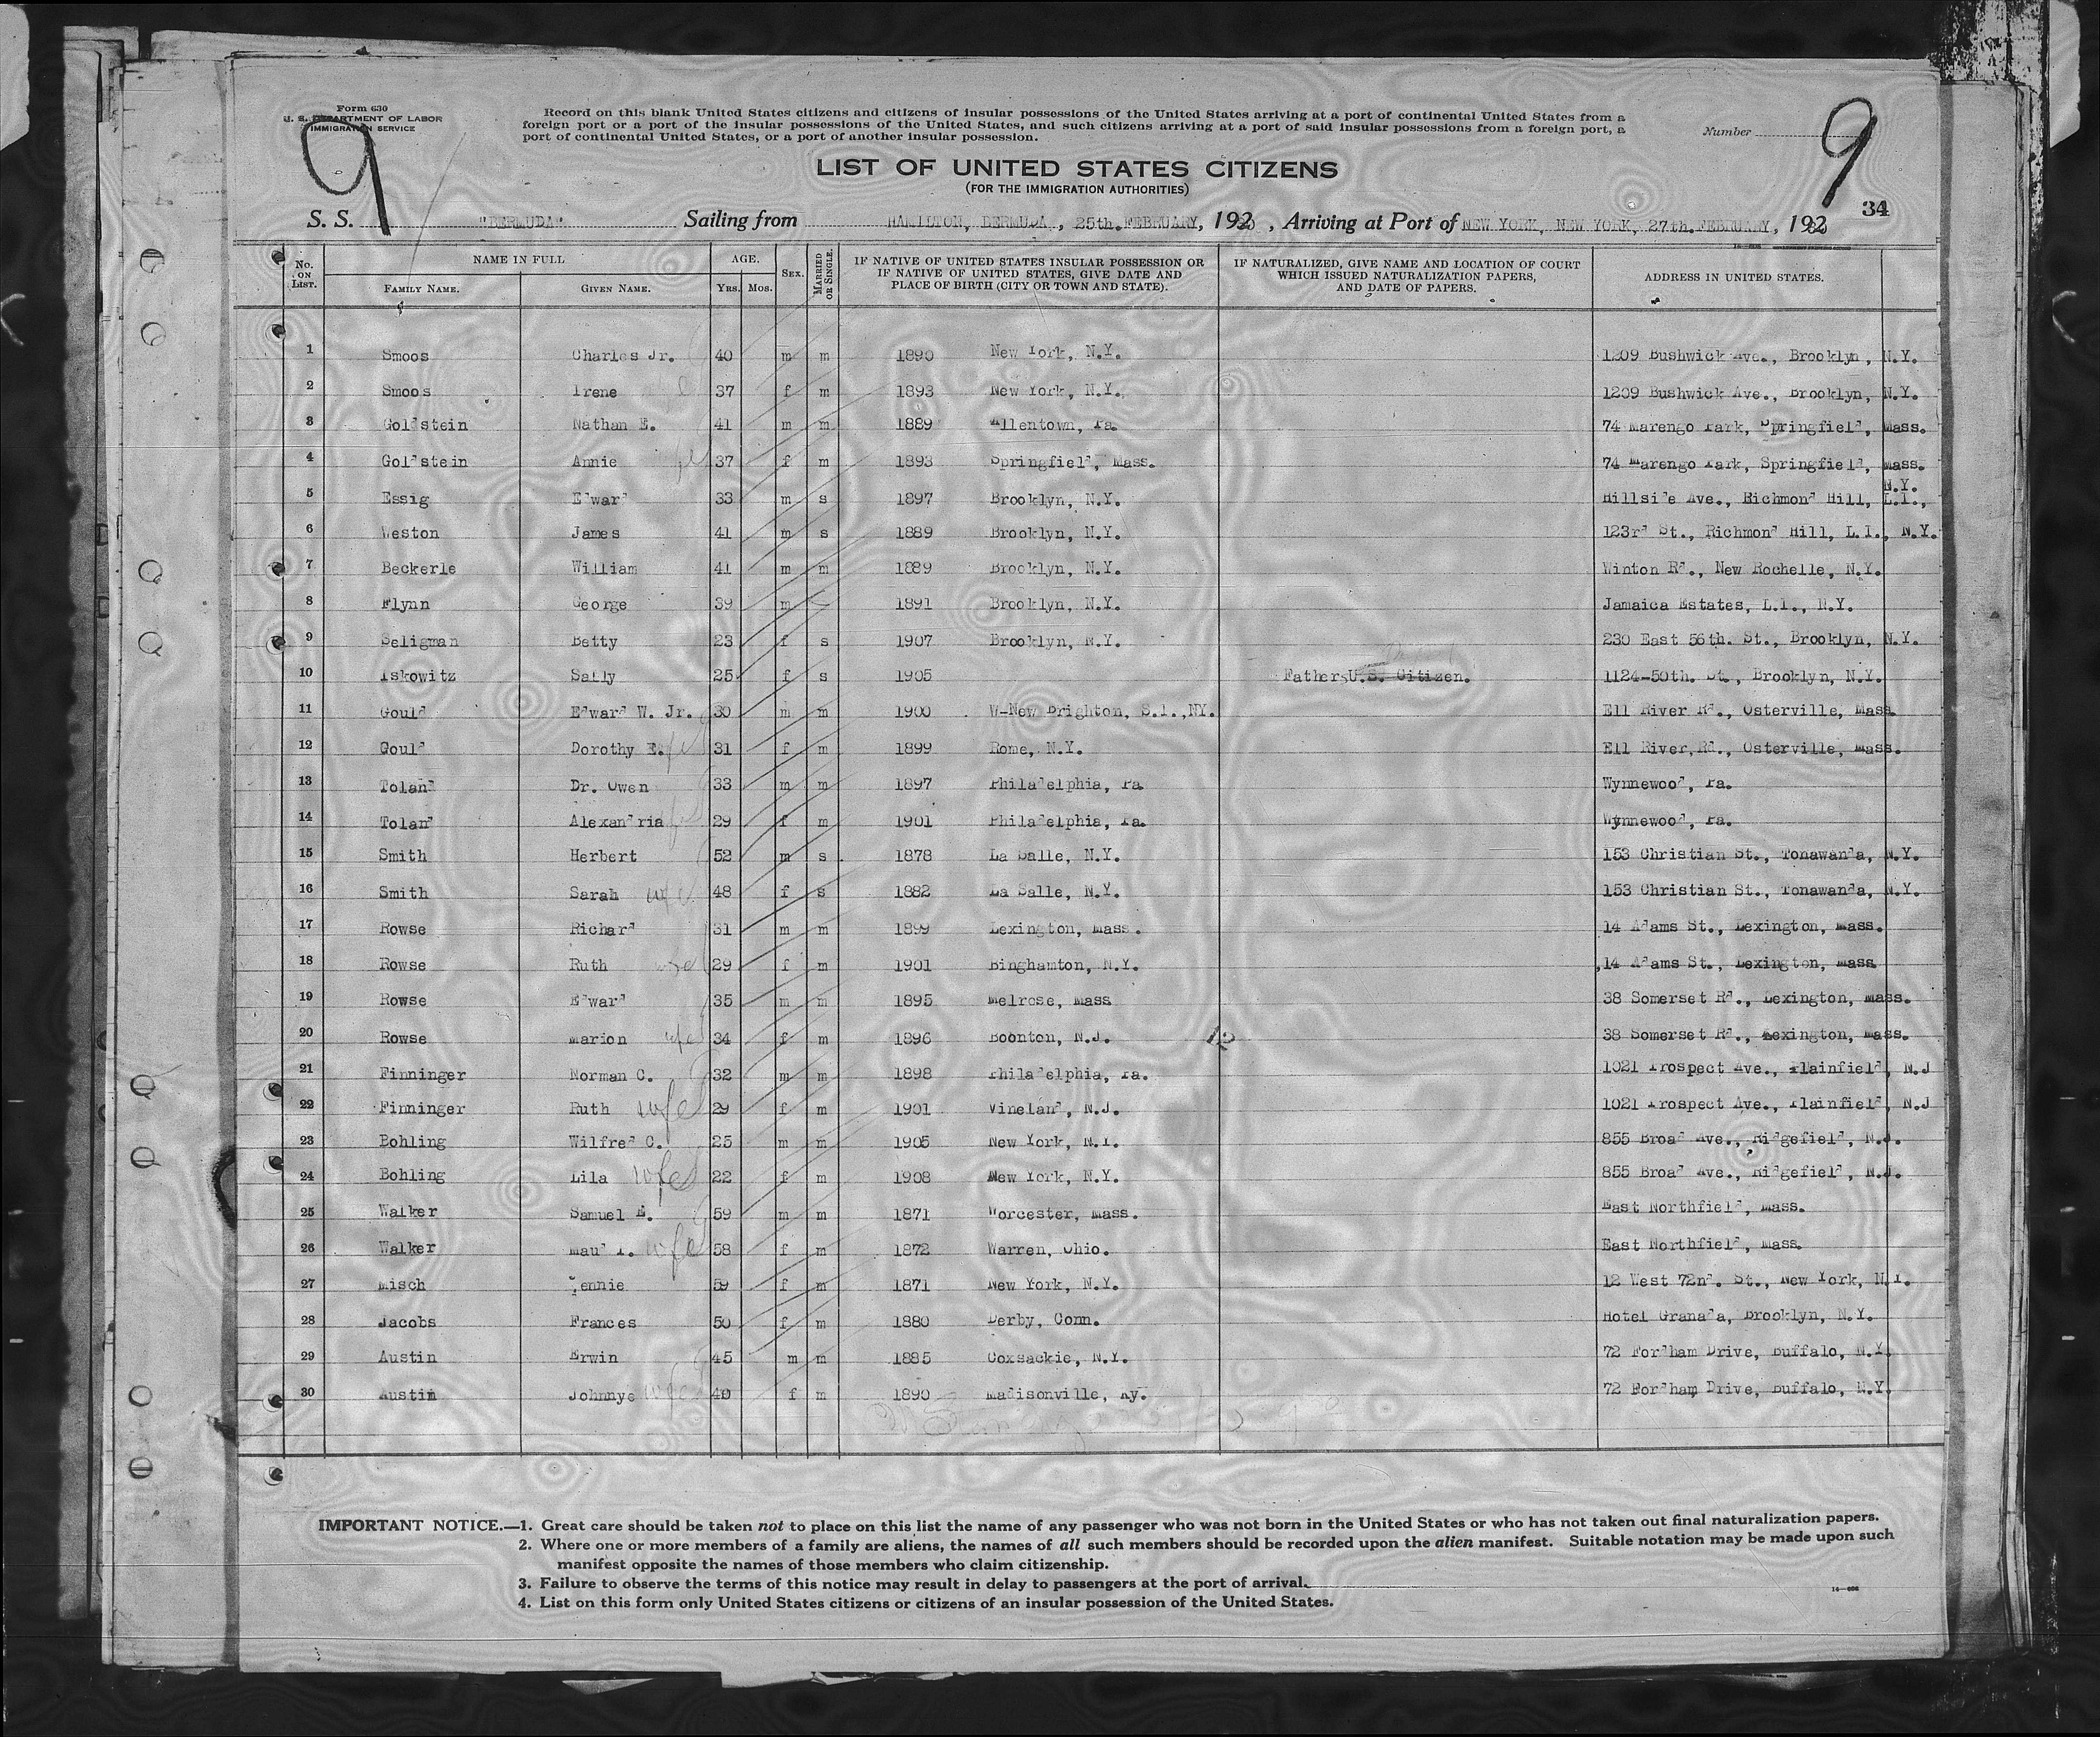 Form 630
U. S. DEPARTMENT OF LABOR
IMMIGRATION SERVICE
9
Record on this blank United States citizens and citizens of insular possessions of the United States arriving at a port of continental United States from a
foreign port or a port of the insular possessions of the United States, and such citizens arriving at a port of said insular possessions from a foreign port, a
port of continental United States, or a port of another insular possession.
Number
9
LIST OF UNITED STATES CITIZENS
(FOR THE IMMIGRATION AUTHORITIES)
34
S. S. "BERMUDA" Sailing from HAMILTON, BERMUDA, 25th. FEBRUARY, 1930, Arriving at Port of NEW YORK, NEW YORK, 27th. FEBRUARY, 1930
No. ON LIST. NAME IN FULL AGE. SEX. MARRIED OR SINGLE. IF NATIVE OF UNITED STATES INSULAR POSSESSION OR IF NATIVE OF UNITED STATES, GIVE DATE AND PLACE OF BIRTH (CITY OR TOWN AND STATE). IF NATURALIZED, GIVE NAME AND LOCATION OF COURT WHICH ISSUED NATURALIZATION PAPERS, AND DATE OF PAPERS. ADDRESS IN UNITED STATES.
FAMILY NAME. GIVEN NAME. YRS. MOS.
1 Smoos Charles Jr. 40 m m 1890 New York, N.Y. 1209 Bushwick Ave., Brooklyn, N.Y.
2 Smoos Irene 37 f m 1893 New York, N.Y. 1209 Bushwick Ave., Brooklyn, N.Y.
3 Goldstein Nathan E. 41 m m 1889 Allentown, Pa. 74 Marengo Park, Springfield, Mass.
4 Goldstein Annie 37 f m 1893 Springfield, Mass. 74 Marengo Park, Springfield, Mass.
5 Essig Edward 33 m s 1897 Brooklyn, N.Y. Hillside Ave., Richmond Hill, L.I., N.Y.
6 Weston James 41 m s 1889 Brooklyn, N.Y. 123rd St., Richmond Hill, L.I., N.Y.
7 Beckerle William 41 m m 1889 Brooklyn, N.Y. Winton Rd., New Rochelle, N.Y.
8 Flynn George 39 m 1891 Brooklyn, N.Y. Jamaica Estates, L.I., N.Y.
9 Seligman Betty 23 f s 1907 Brooklyn, N.Y. 230 East 56th. St., Brooklyn, N.Y.
10 Iskowitz Sally 25 f s 1905 Fathers U.S. Citizen. 1124-50th. St., Brooklyn, N.Y.
11 Gould Edward W. Jr. 30 m m 1900 W-New Brighton, S.I.,NY. Ell River Rd., Osterville, Mass.
12 Gould Dorothy E. wfe 31 f m 1899 Rome, N.Y. Ell River, Rd., Osterville, Mass.
13 Toland Dr. Owen 33 m m 1897 Philadelphia, Pa Wynnewood, Pa.
14 Toland Alexandria 29 f m 1901 Philadelphia, Pa. Wynnewood, Pa.
15 Smith Herbert 52 m s 1878 La Salle, N.Y. 153 Christian St., Tonawanda, N.Y.
16 Smith Sarah wfe 48 f s 1882 La Salle, N.Y. 153 Christian St., Tonawanda, N.Y.
17 Rowse Richard 31 m m 1899 Lexington, Mass. 14 Adams St., Lexington, Mass.
18 Rowse Ruth wfe 29 f m 1901 Binghamton, N.Y. 14 Adams St., Lexington, Mass
19 Rowse Edward 35 m m 1895 Melrose, Mass 38 Somerset Rd., Lexington, Mass.
20 Rowse Marion wfe 34 f m 1896 Boonton, N.J. 12 38 Somerset Rd., Lexington, Mass.
21 Finninger Norman C. 32 m m 1898 Philadelphia, Pa. 1021 Prospect Ave., Plainfield, N.J
22 Finninger Ruth wfe 29 f m 1901 Vineland, N.J. 1021 Prospect Ave., Plainfield, N.J
23 Bohling Wilfred C. 25 m m 1905 New York, N.Y. 855 Broad Ave., Ridgefield, N.J.
24 Bohling Lila wfe 22 f m 1908 New York, N.Y. 855 Broad Ave., Ridgefield, N.J.
25 Walker Samuel E. 59 m m 1871 Worcester, Mass. East Northfield, Mass.
26 Walker Maud I. wfe 58 f m 1872 Warren, Ohio. East Northfield, Mass.
27 Misch Jennie 59 f m 1871 New York, N.Y. 12 West 72nd. St., New York, N.Y.
28 Jacobs Frances 50 f m 1880 Derby, Conn. Hotel Granada, Brooklyn, N.Y.
29 Austin Erwin 45 m m 1885 Coxsackie, N.Y. 72 Fordham Drive, Buffalo, N.Y.
30 Austin Johnnye wfe 40 f m 1890 Madisonville, Ky. 72 Fordham Drive, Buffalo, N.Y.
IMPORTANT NOTICE.—1. Great care should be taken not to place on this list the name of any passenger who was not born in the United States or who has not taken out final naturalization papers.
2. Where one or more members of a family are aliens, the names of all such members should be recorded upon the alien manifest. Suitable notation may be made upon such
manifest opposite the names of those members who claim citizenship.
3. Failure to observe the terms of this notice may result in delay to passengers at the port of arrival.
4. List on this form only United States citizens or citizens of an insular possession of the United States.